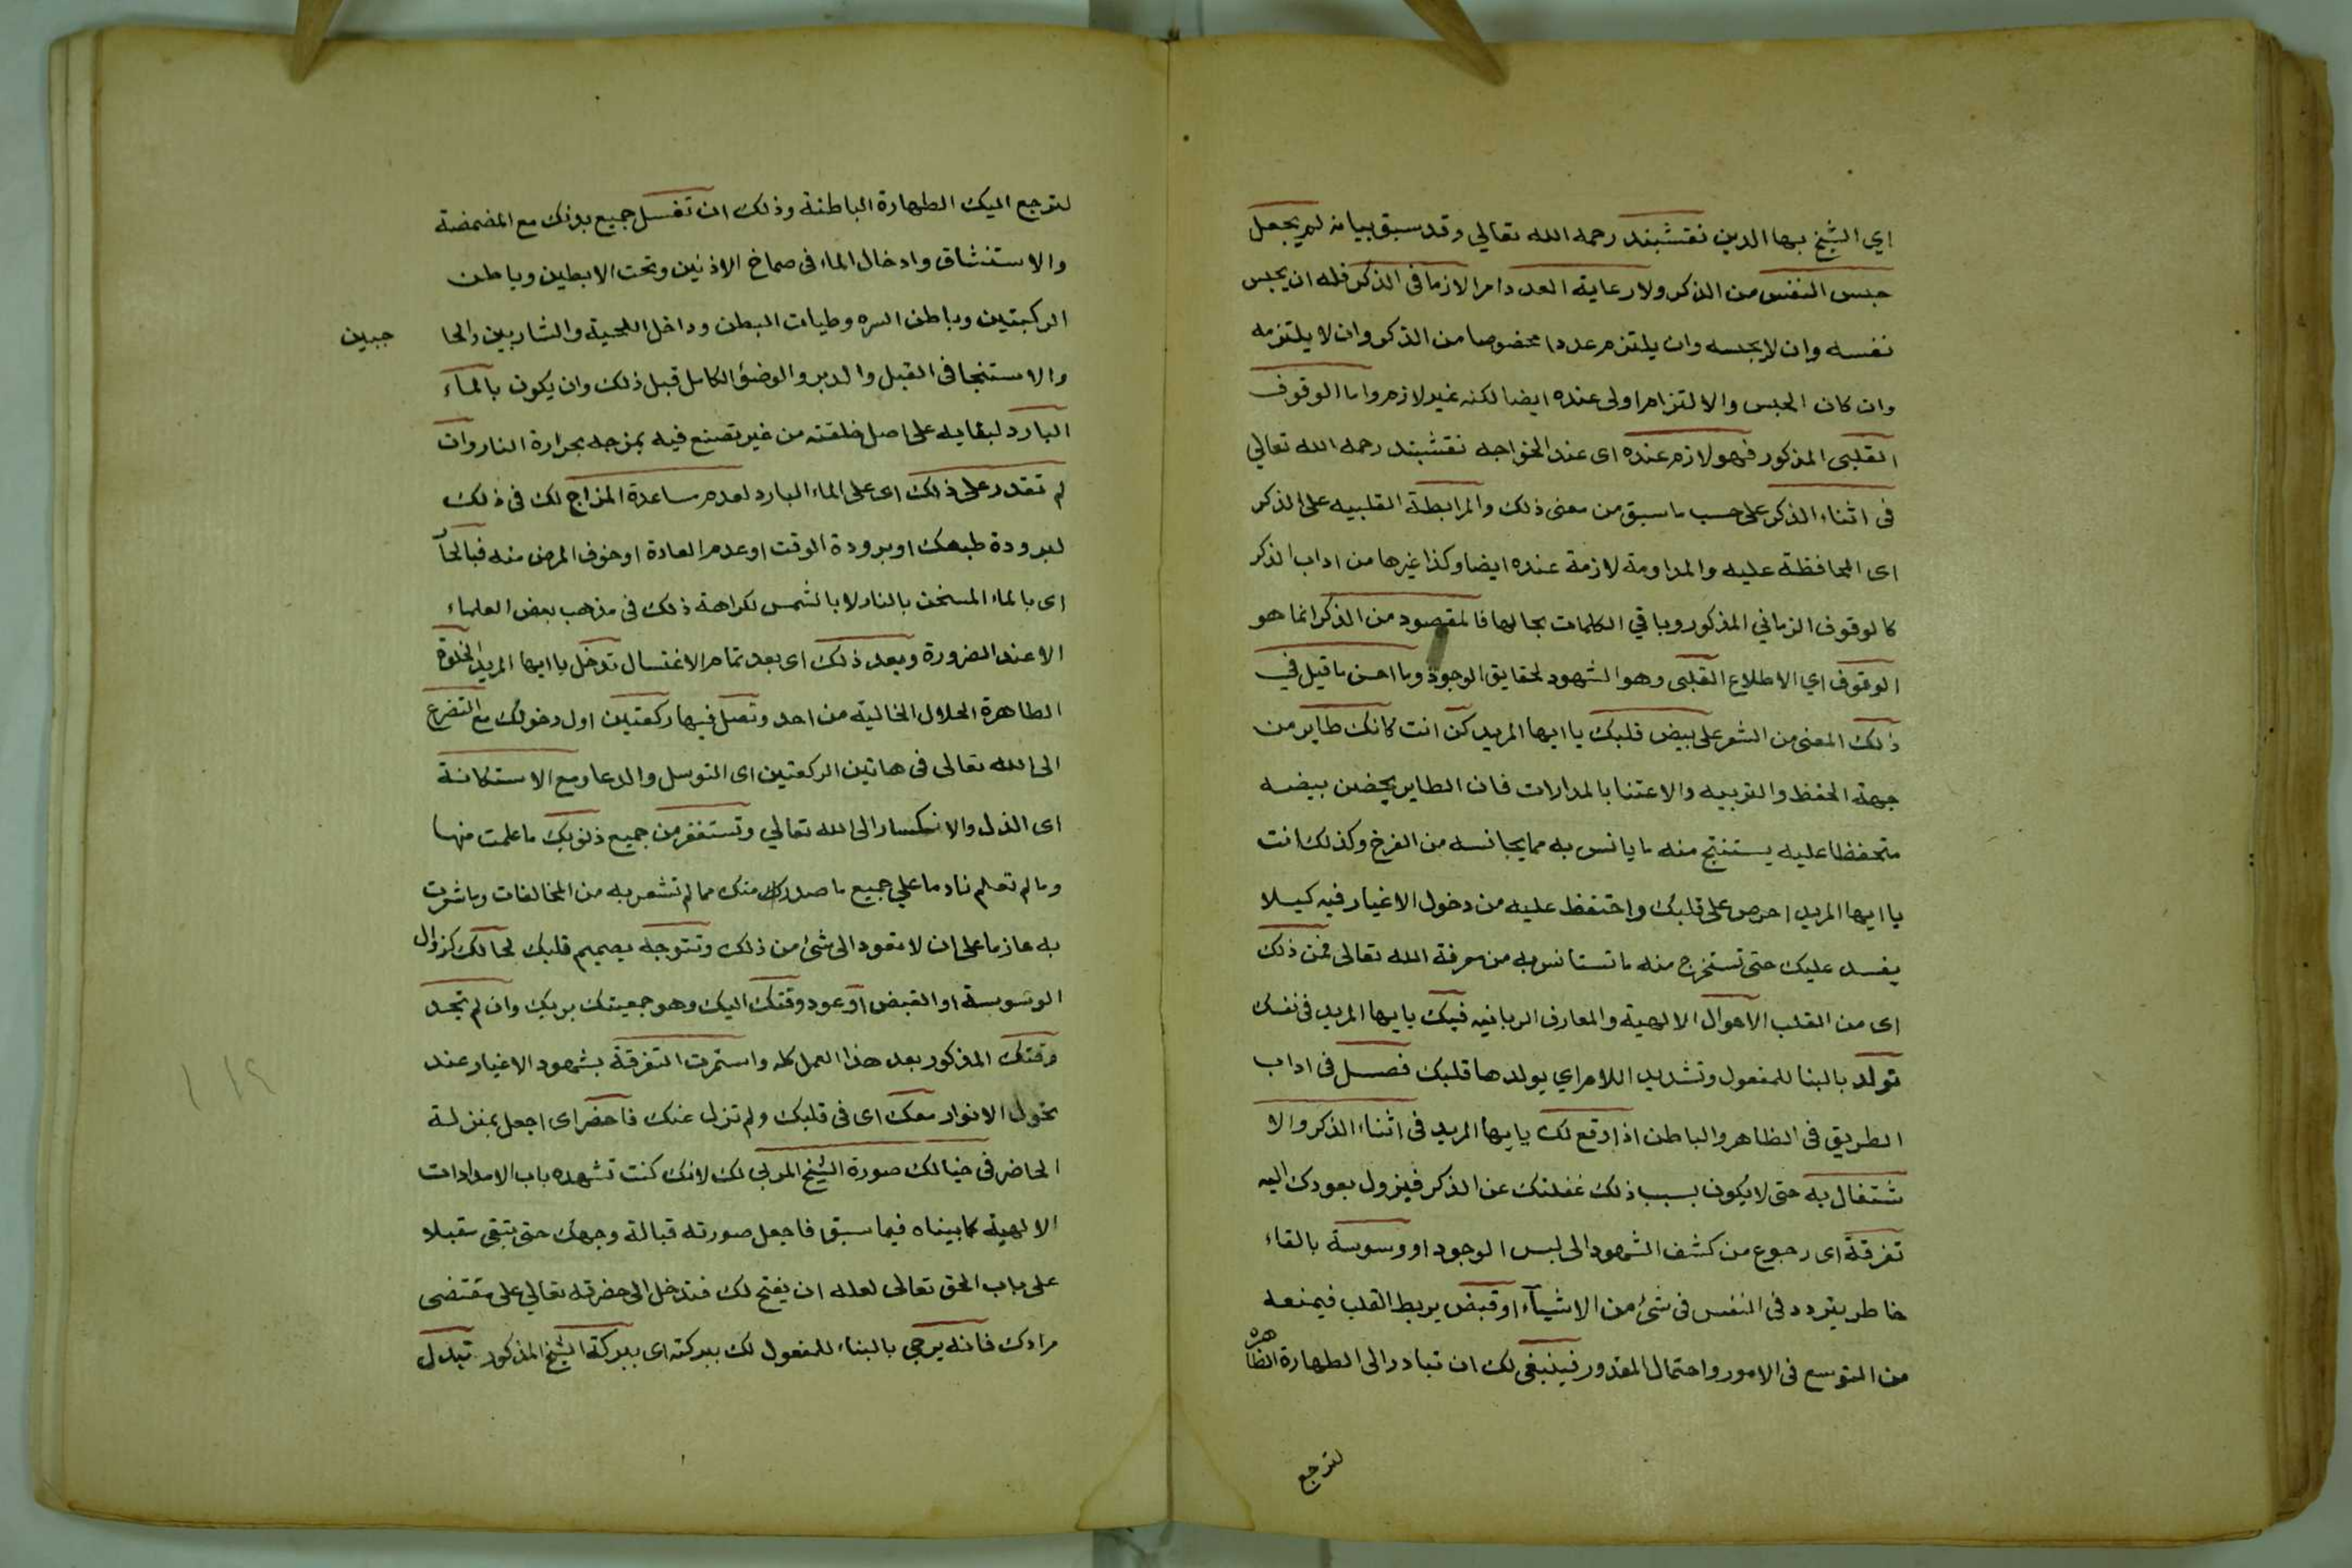 اي الشيخ بها الدين نقشبند رحمه الله تعالي وقد سبق بيانه لم يجعل
حبس النفس من الذكر ولا رعاية العدد امرا لازما في الذكر فله ان يحبس
نفسه وان لا يحبسه وان يلتزم عددا مخصوصا من الذكر وان لا يلتزمه
وان كان الحبس والالتزام اولى عنده ايضا لكنه غير لازم واما الوقوف
القلبي المذكور فهو لازم عنده اى عند الخواجه نقشبند رحمه الله تعالي
في اثناء الذكر على حسب ما سبق من معنى ذلك والمرابطة القلبيه على الذكر
اى المحافظة عليه والمداومة لازمة عنده ايضا وكذا غيرها من اداب الذكر
كالوقوف الزماني المذكور وباقي الكلمات بحالها فالمقصود من الذكر انما هو
الوقوف اي الاطلاع القلبي وهو الشهود لحقايق الوجود وما احسن ما قيل في
ذلك المعنى من الشعر على بيض قلبك يا ايها المريد كن انت كانك طاير من
جهة الحفظ والتربيه والاعتنا بالمدارات فان الطاير يحضن بيضه
متحفظا عليه يستنتج منه ما يانس به مما يجانسه من الفرخ وكذلك انت
يا ايها المريد احرص على قلبك واحتفظ عليه من دخول الاغيار فيه كيلا
يفسد عليك حتى تستخرج منه ما تستانس به من معرفة الله تعالى فمن ذلك
اى من القلب الاحوال الالهية والمعارف الربانيه فيك يا ايها المريد في نفسك
تولد بالبنا للمفعول وتشديد اللام اي يولدها قلبك فصل في اداب
الطريق في الظاهر والباطن اذا وقع لك يا ايها المريد في اثناء الذكر والا
شتغال به حتى لا يكون بسبب ذلك غفلتك عن الذكر فيزول بعودك اليه
تفرقة اى رجوع من كشف الشهود الى لبس الوجود او وسوسة بالقاء
خاطر يتردد في النفس في شئ من الاشيآء او قبض يربط القلب فيمنعه
من التوسع في الامور واحتمال المقدور فينبغى لك ان تبادر الى الطهارة الظاهره
لترجع
لترجع اليك الطهارة الباطنة وذلك ان تغسل جميع بدنك مع المضمضة
والاستنشاق وادخال الماء في صماخ الاذنين وتحت الابطين وباطن
الركبتين وباطن السره وطيات البطن وداخل اللحية والشاربين والحا
جبين
والاستنجا في القبل والدبر والوضؤ الكامل قبل ذلك وان يكون بالماء
البارد لبقايه على اصل خلقته من غير تصنع فيه بمزجه بحرارة النار وان
لم تقدر على ذلك اى على الماء البارد لعدم مساعدة المزاج لك في ذلك
لبرودة طبعك او برودة الوقت او عدم العادة او خوف المرض منه فبالحآ
اى بالماء المسخن بالنار لا بالشمس لكراهة ذلك في مذهب بعض العلماء
الا عند الضرورة وبعد ذلك اى بعد تمام الاغتسال تدخل يا ايها المريد الخلوة
الطاهرة الحلال الخالية من احد وتصل فيها ركعتين اول دخولك مع التضرع
الى الله تعالى في هاتين الركعتين اى التوسل والدعا ومع الاستكانة
اى الذل والانكسار الى الله تعالي وتستغفر من جميع ذنوبك ما علمت منها
وما لم تعلم نادما علي جميع ما صدر منك مما لم تشعر به من المخالفات وما شعرت
به عازما على ان لا تعود الى شئ من ذلك وتتوجه بصميم قلبك لحالك كزوال
الوسوسة او القبض او عود وقتك اليك وهو جمعيتك بربك وان لم تجد
وقتك المذكور بعد هذا العمل كله واستمرت التفرقة بشهود الاغيار عند
تحول الانوار معك اى في قلبك ولم تزل عنك فاحضر اى اجعل بمنزلة
الحاضر في خيالك صورة الشيخ المربي لك لانك كنت تشهده باب الامدادات
الالهية كما بيناه فيما سبق فاجعل صورته قبالة وجهك حتى تبقى مقبلا
على باب الحق تعالى لعله ان يفتح لك فتدخل الى حضرته تعالي على مقتضى
مرادك فانه يرجى بالبناء للمفعول لك ببركته اى ببركة الشيخ المذكور تبدل
١١٩